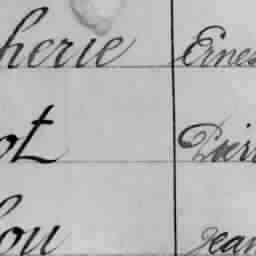 herie Ernes
ot Pierr
lou Jean